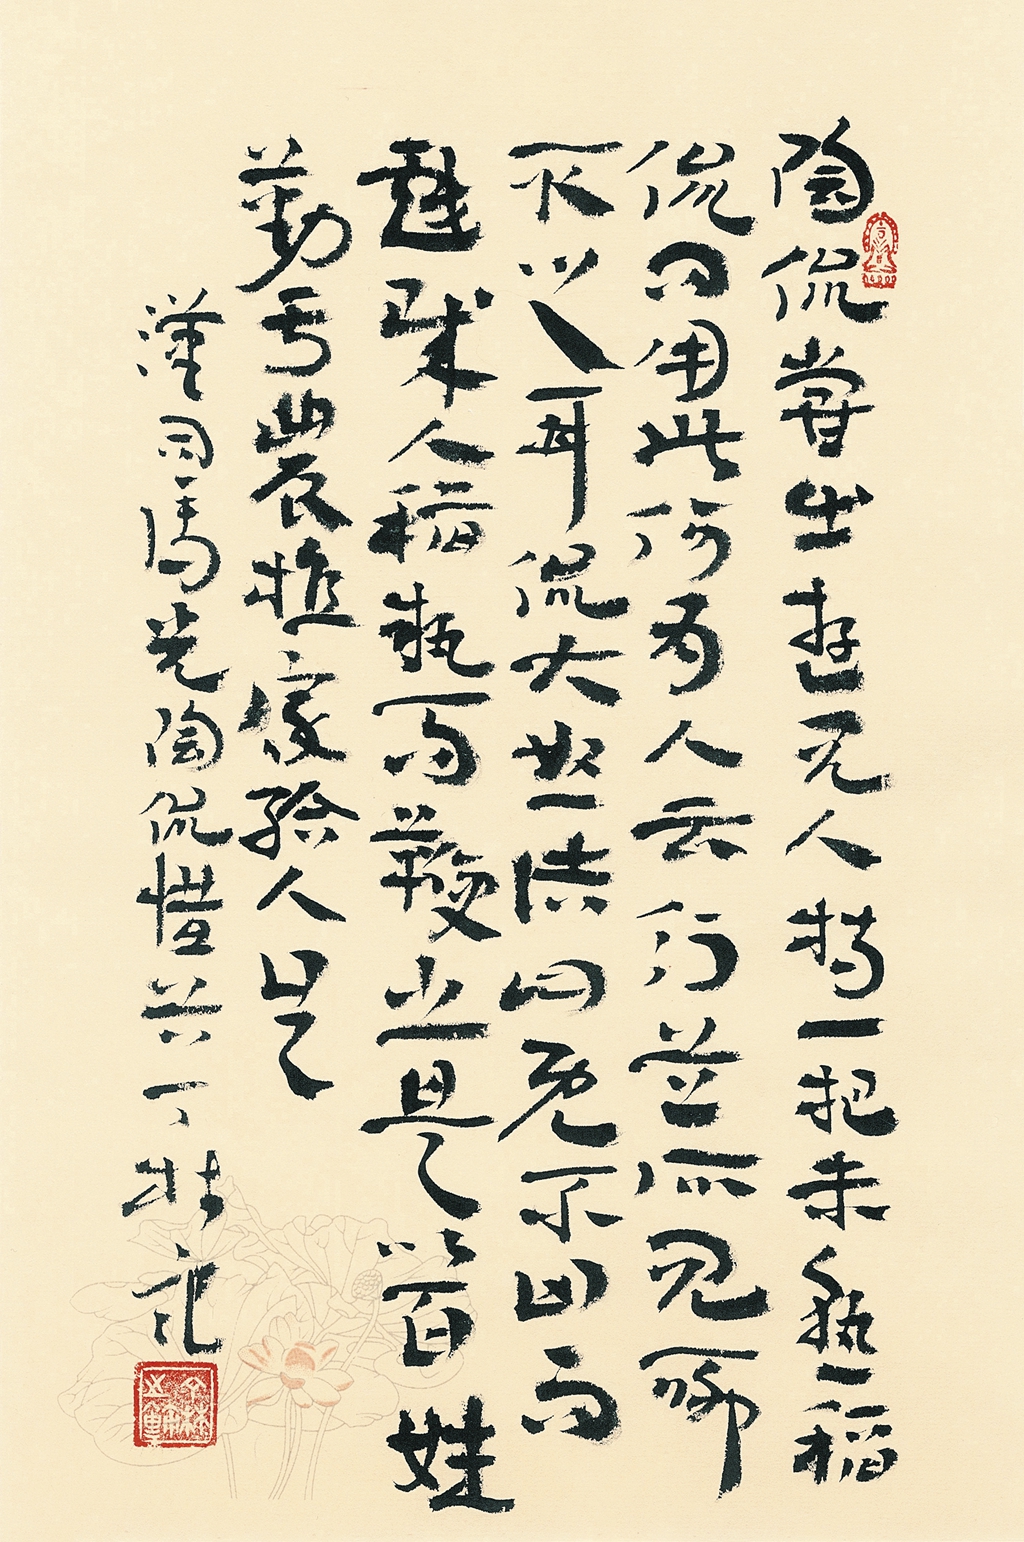 陶侃嘗出遊見人持一把未熟稻
侃問用此何為人云行道所見聊
耳侃大怒詰曰既不田而
戲賊人稻執而鞭之是以百姓
勤于農植家給人足
漢司馬光陶侃惜